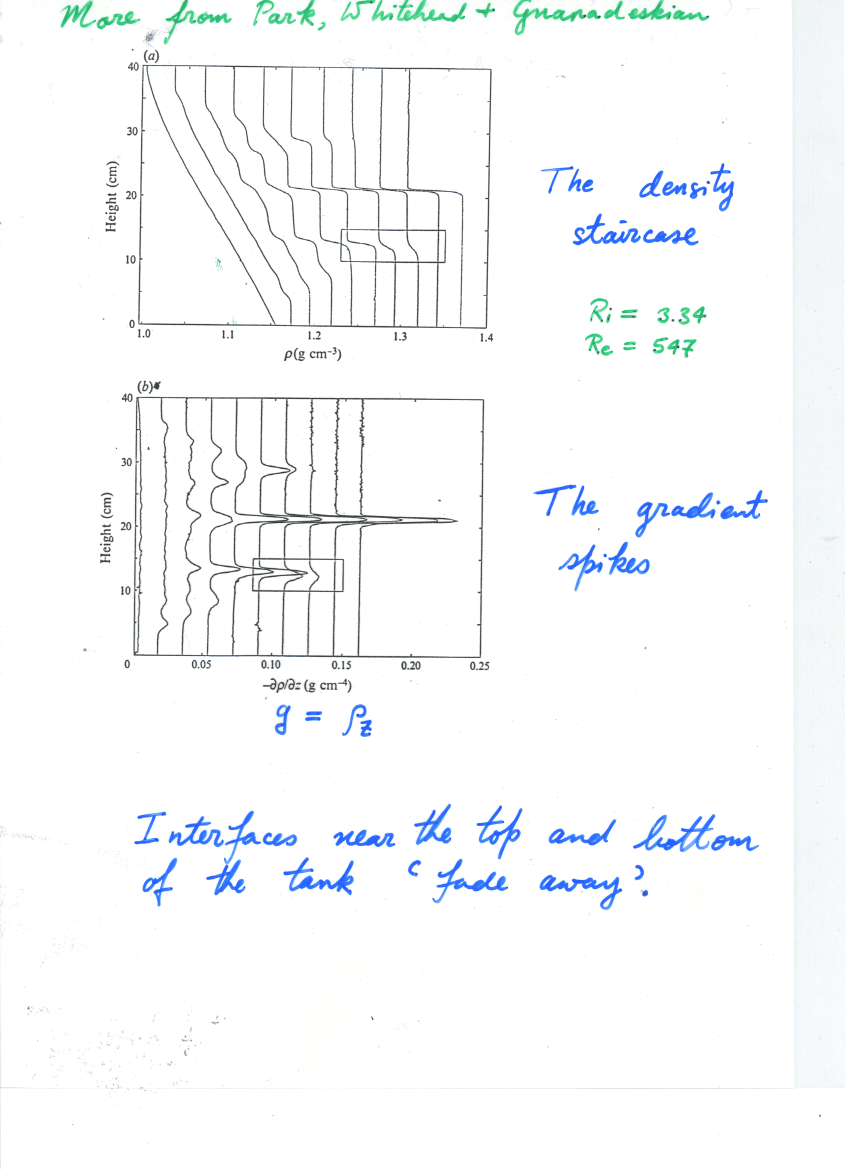 More from Park, Whitehead + Gnanadeskian
(a)
40
30
20
10
0
Height (cm)
1.0 1.1 1.2 1.3 1.4
ρ(g cm⁻³)
The density
staircase
Ri = 3.34
Re = 547
(b)
40
30
20
10
Height (cm)
0 0.05 0.10 0.15 0.20 0.25
-∂ρ/∂z (g cm⁻⁴)
The gradient
spikes
g = ρz
Interfaces near the top and bottom
of the tank ‘fade away’.